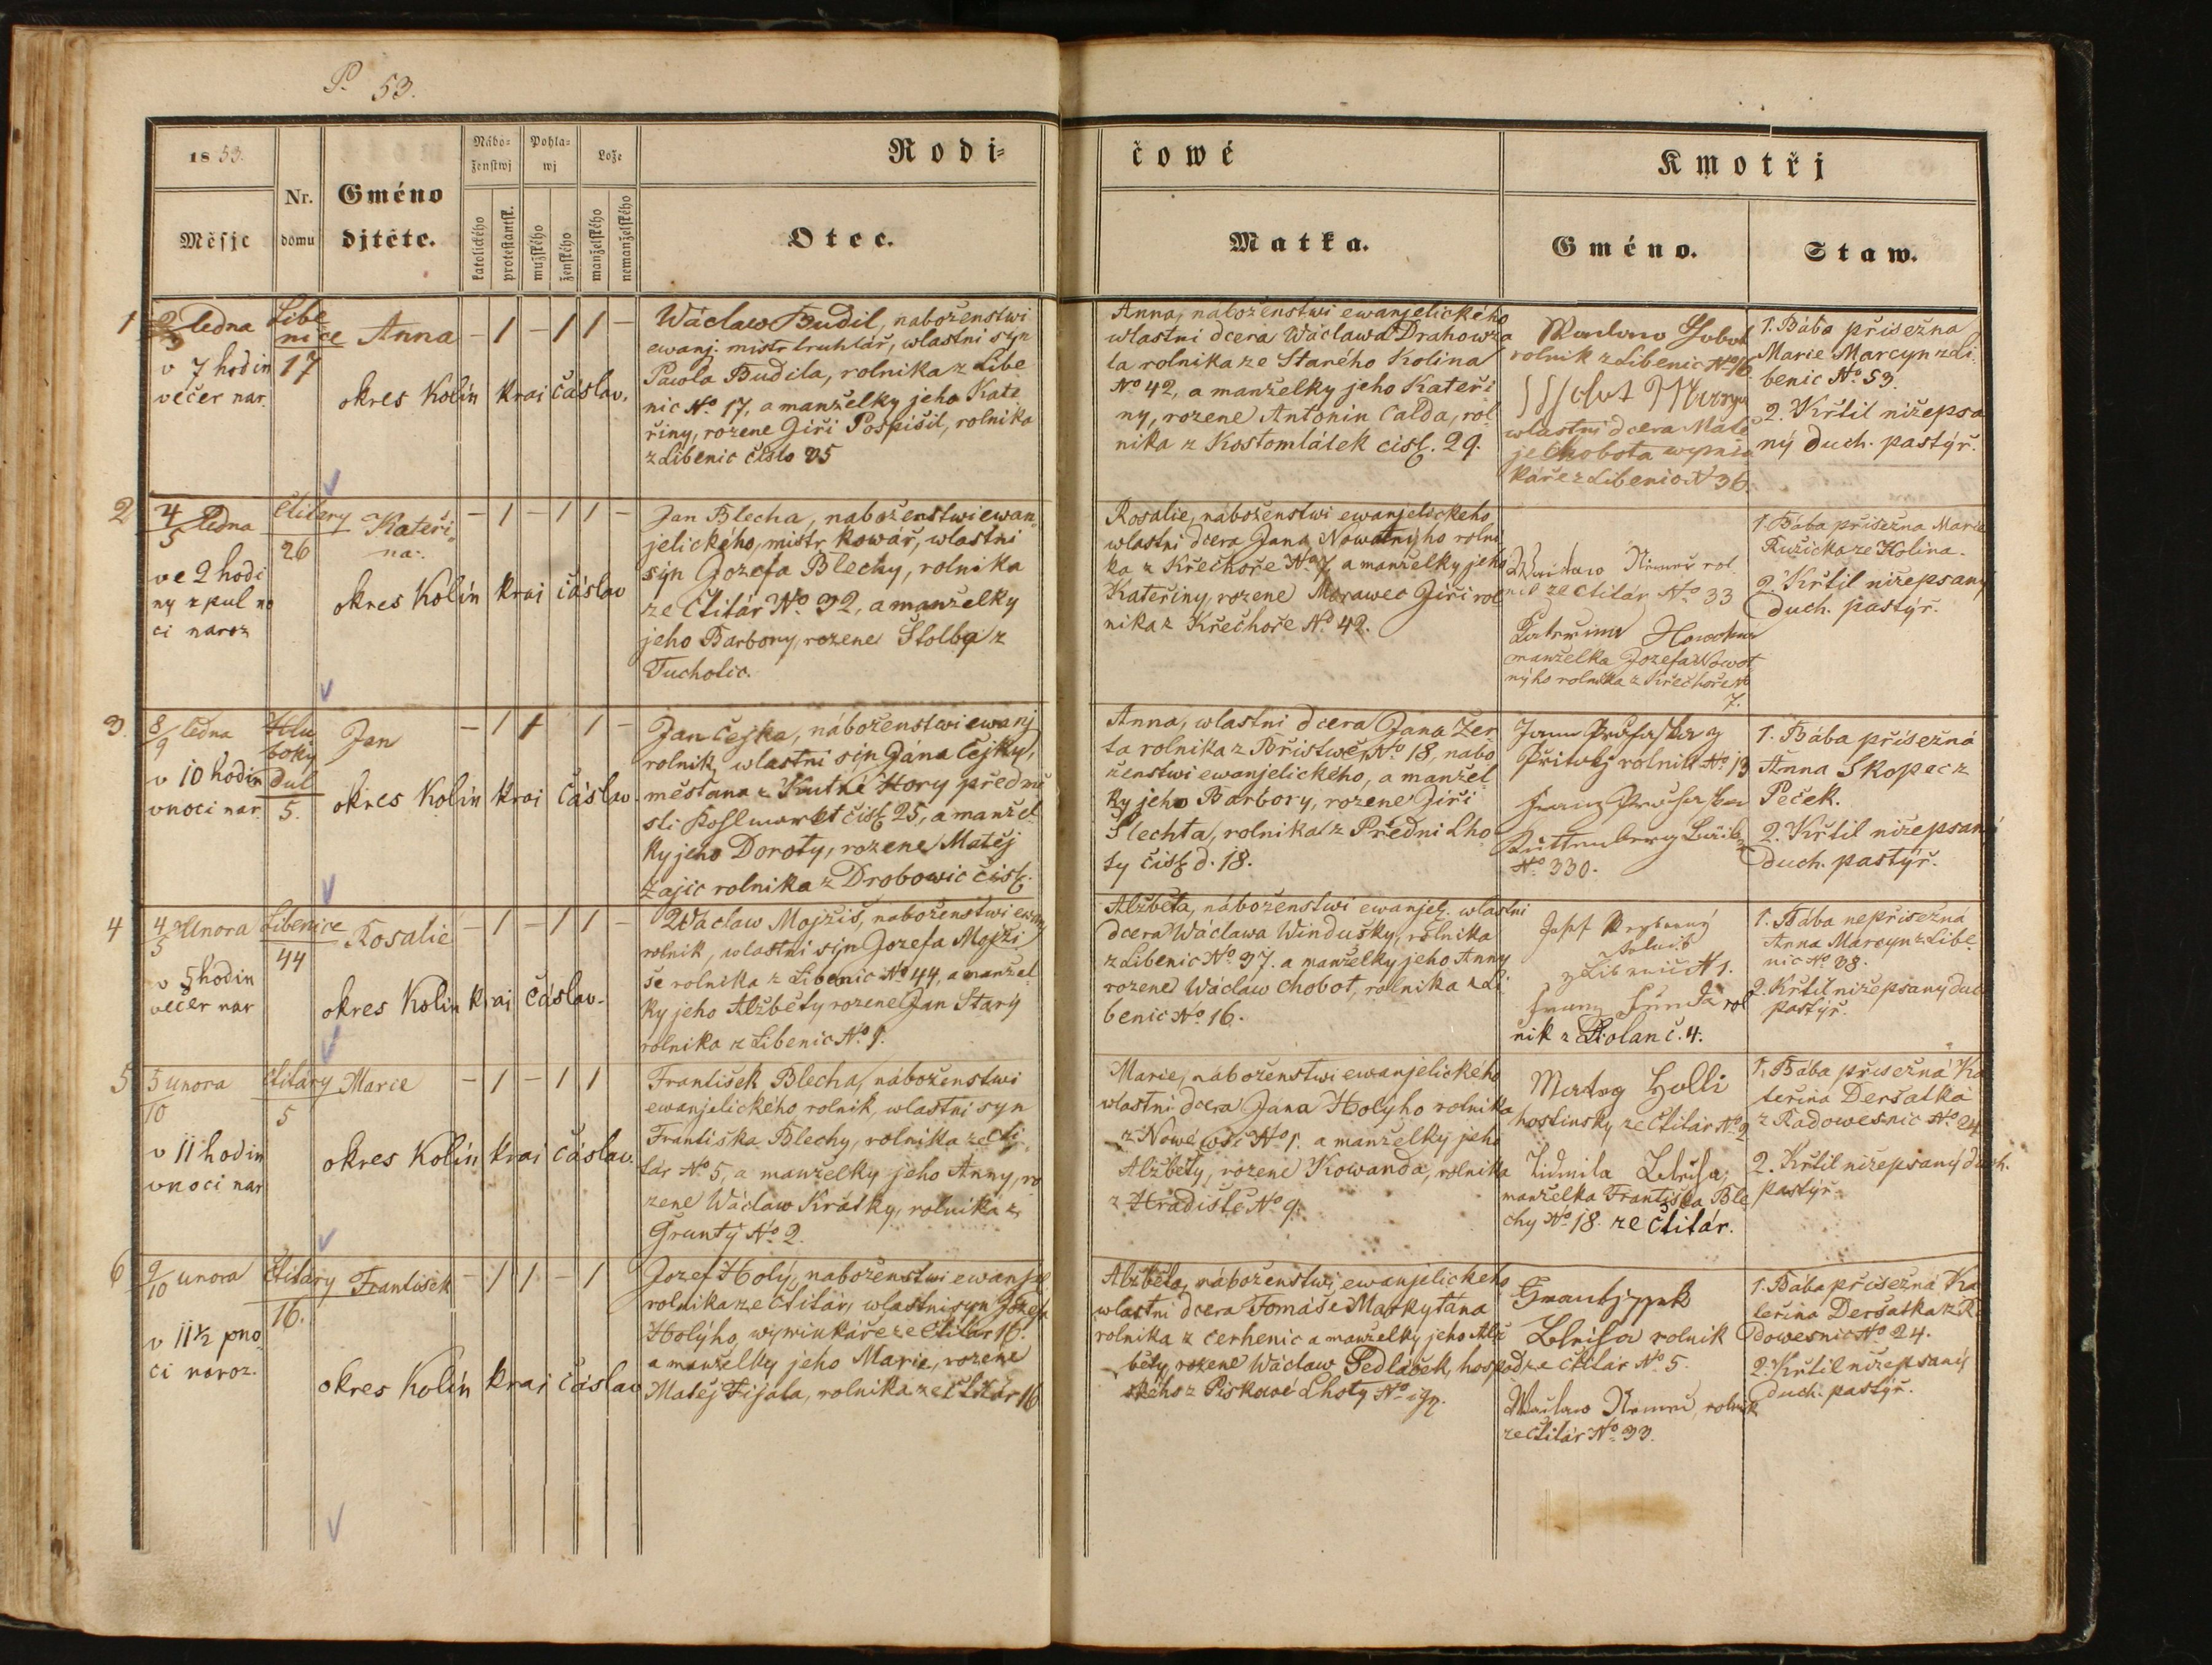 P. 53.
1853.
Měsjc
Nr.
domu
Gméno
djtěte.
Nábo-
ženstwj
katolického
protestantsk.
Pohla-
wj
mužského
ženského
Lože
manželského
nemanželského
Rodi-
čowé
Otec.
Matka.
Kmotřj
Gméno.
Staw.
1
2/3 ledna
v 7 hodin
večer nar.
Libe
nice
17
Anna
- 1 - 1 1 -
okres Kolín krai čáslav.
Wáclaw Budil, naboženstwi
ewanj. mistr truhlář, wlastni syn
Pawla Budila, rolnika z Libe
nic No. 17, a manželky jeho Kate
řiny, rozene Giři Pospišil, rolnika
z Libenic čislo 35
Anna, naboženstwi ewanjelického
wlastni dcera Wáclawa Drahowza
la rolnika ze Starého Kolina
No 42, a manželky jeho Kateři
ny, rozene Antonin Calda, rol
nika z Kostomlátek cisl. 29.
rolnik z Libenic No 16
wlastni dcera Máte
je Chobota wymin
káře z Libenic N 36.
1. Bába přisežna
Marie Marcyn z Li
benic No. 53.
2. Křtil nižepsa
ný duch. pastýř.
2
4/5 ledna
ve 2 hodi
ny z pul no
ci naroz
Ctitary
26
Kateři
na.
- 1 - 1 1 -
okres Kolín krai čáslav
Jan Blecha, naboženstwi ewan
jelického, mistr kowář, wlastni
syn Jozefa Blechy, rolnika
ze Ctitár No 32, a manželky
jeho Barbory, rozene Štolba z
Tucholic.
Rosalie, naboženstwi ewanjelického
wlastni dcera Jana Nowatnýho rolni
ka z Křečhoře No 7, a manželky jeho
Kateřiny, rozene Morawec Giři rol
nika z Křečhoře No. 42.
rol
nik ze Ctitár No. 33
Katerina
manželka Jozefa Nowot
nýho rolnika z Křečhoře No
7.
1. Bába přisežna Marie
Ružicka ze Kolina.
2. Křtil nižepsaný
duch. pastýř.
3.
8/9 ledna
v 10 hodin
vnoci nar
Hlu
boky
dul
5.
Jan
- 1 1 1 -
okres Kolín krai Čáslav.
Jan Čejka, náboženstwi ewanj
rolnik wlastni syn Jána Čejky,
měštana z Kutné Hory předmě
sti čisl 25, a manžel
ky jeho Doroty, rozene Matěj
Zajic rolnika z Drobowic čisl.
Anna, wlastni dcera Jana Zer
ta rolnika z Břistwě, No. 18, nabo
ženstwi ewanjelického, a manžel
ky jeho Barbory, rozene Giři
Šlechta, rolnika z Předni Lho
ty čisl d. 18.
rolnik No. 13
No. 330.
1. Bába přísežná
Anna Skopec z
Peček.
2. Křtil nižepsaný
duch. pastýř.
4
4/5 Unora
v 5 hodin
večer nar
Libenice
44
Rosalie
- 1 - 1 1 -
okres Kolin krai čáslav.
Wáclaw Mojžiš, naboženstwi ewanj
rolnik, wlastni syn Jozefa Mojži
še rolnika z Libenic No 44, a manžel
ky jeho Alžběty rozene Jan Starý
rolnika z Libenic No. 1.
Alžběta, náboženstwi ewanjel. wlastni
dcera Wáclawa Windušky, rolnika
z Libenic No. 37. a manželky jeho Anny
rozene Wáclaw Chobot, rolnika z Li
benic No. 16.
z Libenic N 1.
rol
nik z Polan č. 4.
1. Bába nepřisežná
Anna Marcyn z Libe
nic No. 38.
2. Křtil nižepsaný duch
pastýř.
5
5/10 unora
v 11 hodin
vnoci nar
Ctitáry
5
Marie
- 1 - 1 1
okres Kolín krai čáslav.
František Blecha, náboženstwi
ewanjelického, rolnik, wlastni syn
Františka Blechy, rolnika ze Cti
tár No. 5, a manželky jeho Anny, ro
zene Wáclaw Krátky, rolnika z
Grunty No. 2.
Marie, náboženstwi ewanjelického
wlastni dcera Jána Holýho rolnika
z Nowé wsi No 1. a manželky jeho
Alžběty, rozene Kowanda, rolnika
z Hradiště No 9.
hostinsky ze Ctitár No. 2
manželka Františka Ble
chy No. 18. ze Ctitár.
1. Bába přisežná Ka
teřina Deršatka
z Radowesnic No. 24
2. Křtil nižepsaný duch.
pastýř.
6
9/10 unora
v 11 1/2 pno
ci naroz.
Ctitáry
16.
František
- 1 1 - 1
okres Kolín krai čáslav
Jozef Holý, naboženstwi ewanjel
rolnika ze Ctitár, wlastni syn Jozefa
Holýho, wyminkáře ze Ctitár 16.
a manželky jeho Marie, rozene
Matěj Fijala, rolnika ze Ctitár 16
Alžběta, náboženstwi ewanjelického
wlastni dcera Tomáše Markytána
rolnika z Cerhenic a manželky jeho Alž
běty, rozene Wáclaw Sedláček, hospod
ského z Piskowé Lhoty No.
rolnik
ze Ctitár No 5.
rolnik
ze Ctitár No. 33.
1. Bába přisežná Ka
teřina Deršatka z Ra
dowesnic No. 24.
2. Křtil nižepsaný
duch. pastýř.